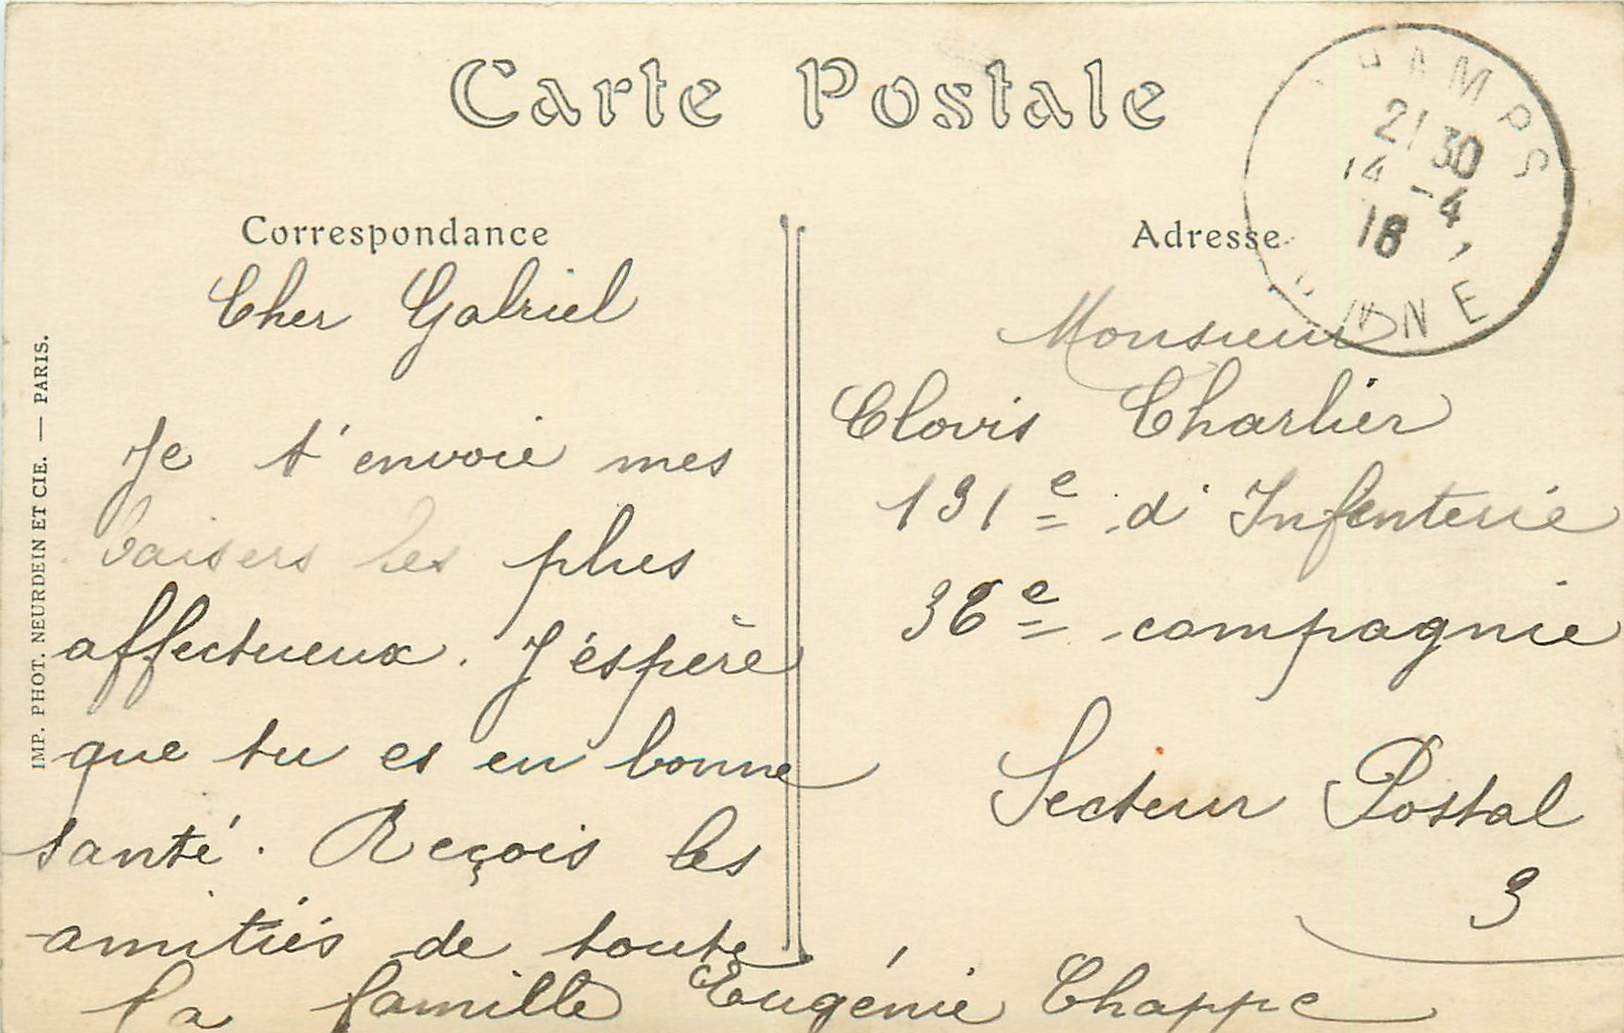 Carte Postale
Correspondance
Cher Gabriel
Je t'envoie mes
baisers les plus
affectueux. J'éspère
que tu es en bonne
santé. Reçois les
amitiés de toute
la famille Eugénie Chappe
Adresse
Monsieur
Clovis Charlier
131e d'Infenterie
36e compagnie
Secteur Postal
3
21 30
14 -4
16
IMP. PHOT. NEURDEIN ET CIE. — PARIS.